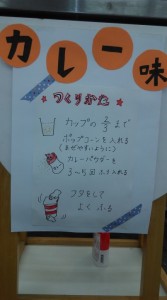 カレー味
★つくりかた★
カップの 2/3 まで
ポップコーンを入れる
(まぜやすいように)
カレーパウダーを
3〜5回 ふり入れる
フタをして
よく ふる